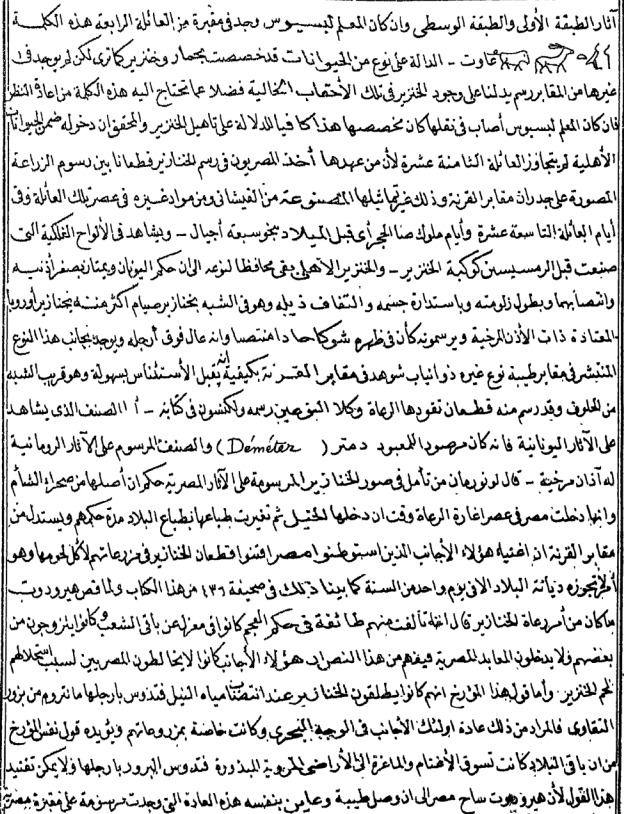 آثار الطبقة الأولى والطبقة الوسطى وان كان المعلم لبسيوس وجد فى مقبرة من العائلة الرابعة هذه الكلمة
عاوت – الدالة على نوع من الحيوانات قد خصصت بحمار وخنزير كما ترى لكن لم يوجد فى
غيرها من المقابر رسم يدلنا على وجود الخنزير فى تلك الأحقاب الخالية فضلا عما تحتاج اليه هذه الكلمة من اعادة النظر
فان كان المعلم لبسيوس أصاب فى نقلها كان مخصصها هذا كافيا للدلالة على تاهيل الخنزير والمحقق ان دخوله ضمن الحيوانات
الأهلية لم يتجاوز العائلة الثامنة عشرة لأن من عهدها أخذ المصريون فى رسم الخنازير قطعانا بين رسوم الزراعة
المصورة على جدران مقابر القرنة وذلك غير تماثيلها المصنوعة من القيشانى ومن مواد غيره فى عصر تلك العائلة وفى
أيام العائلة التاسعة عشرة وأيام ملوك صا الحجر أى قبل الميلاد بنحو سبعة أجيال – ويشاهد فى الألواح الفلكية التى
صنعت قبل الرمسيسين كوكبة الخنزير – والخنزير الأهلى بقى محافظا لنوعه الى ان حكم اليونان ويمتاز بصغر أذنيه
وانتصابهما وبطول زلومته وباستدارة جسمه والتفاف ذيله وهو فى الشبه بخنازير صيام أكثر منه بخنازير أوروبا
المعتادة ذات الأذن المرخية ويرسمونه كأن فى ظهره شوكا حادا منتصبا وانه عال فوق أرجله ويوجد بجانب هذا النوع
المنتشر فى مقابر طيبة نوع غيره ذو أنياب شوهد فى مقابر القرنة بكيفية أنه يقبل الأستئناس بسهولة وهو قريب الشبه
من الحلوف وقد رسم منه قطعان تقودها الرعاة وكلا النوعين رسمه ولكنسون فى كتابه – أما الصنف الذى يشاهد
على الآثار اليونانية فانه كان مرصودا للمعبود دمتر (Déméter) والصنف المرسوم على الآثار الرومانية
له آذان مرخية – قال لونورمان من تأمل فى صور الخنازير المرسومة على الآثار المصرية حكم ان أصلها من صحراء الشأم
وانها دخلت مصر فى عصر اغارة الرعاة وقت ان دخلها الخيل ثم تغيرت طباعها بطباع البلاد مدة حكمهم ويستدل من
مقابر القرنة ان اغنياء هؤلاء الأجانب الذين استوطنوا مصر اقتنوا قطعان الخنازير فى مزرعاتهم لأكل لحومها وهو
أمر لم تجوزه ديانة البلاد الا فى يوم واحد من السنة كما بينا ذلك فى صحيفة ٤٣٦ من هذا الكتاب ولما قص هيرودوت
ما كان من أمر رعاة الخنازير قال انه تألفت منهم طائفة فى حكم العجم كانوا فى معزل عن باقى الشعب وكانوا يتزوجون من
بعضهم ولا يدخلون المعابد المصرية فيفهم من هذا النص ان هؤلاء الأجانب كانوا لا يخالطون المصريين لسبب استحلالهم
لحم الخنزير . وأما قول هذا المؤرخ انهم كانوا يطلقون الخنازير عند انتصاب مياه النيل فتدوس بارجلها ما نثروه من بزور
التقاوى فالمراد من ذلك عادة اولئك الأجانب فى الوجه البحرى وكانت خاصة بمزروعاتهم ويؤيده قول نفس المؤرخ
من ان باقى البلاد كانت تسوق الأغنام والماعزة الى الأراضى المروية المبذورة فتدوس البزور بارجلها ولا يمكن تفنيد
هذا القول لأن هيرودوت ساح مصر الى ان وصل طيبة وعاين بنفسه هذه العادة التى وجدت مرسومة على مقبرة